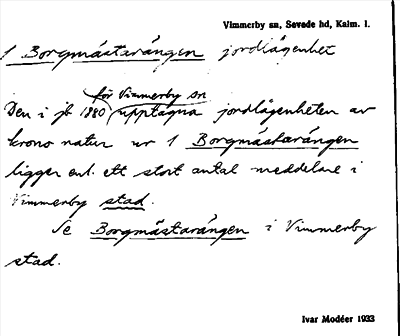 Vimmerby sn, Sevede hd, Kalm. l.
1 Borgmästarängen jordlägenhet
för Vimmerby sn
Den i jb 1880 upptagna jordlägenheten av
krono natur nr 1 Borgmästarängen
ligger enl. ett stort antal meddelare i
Vimmerby stad.
Se Borgmästarängen i Vimmerby
stad.
Ivar Modéer 1933